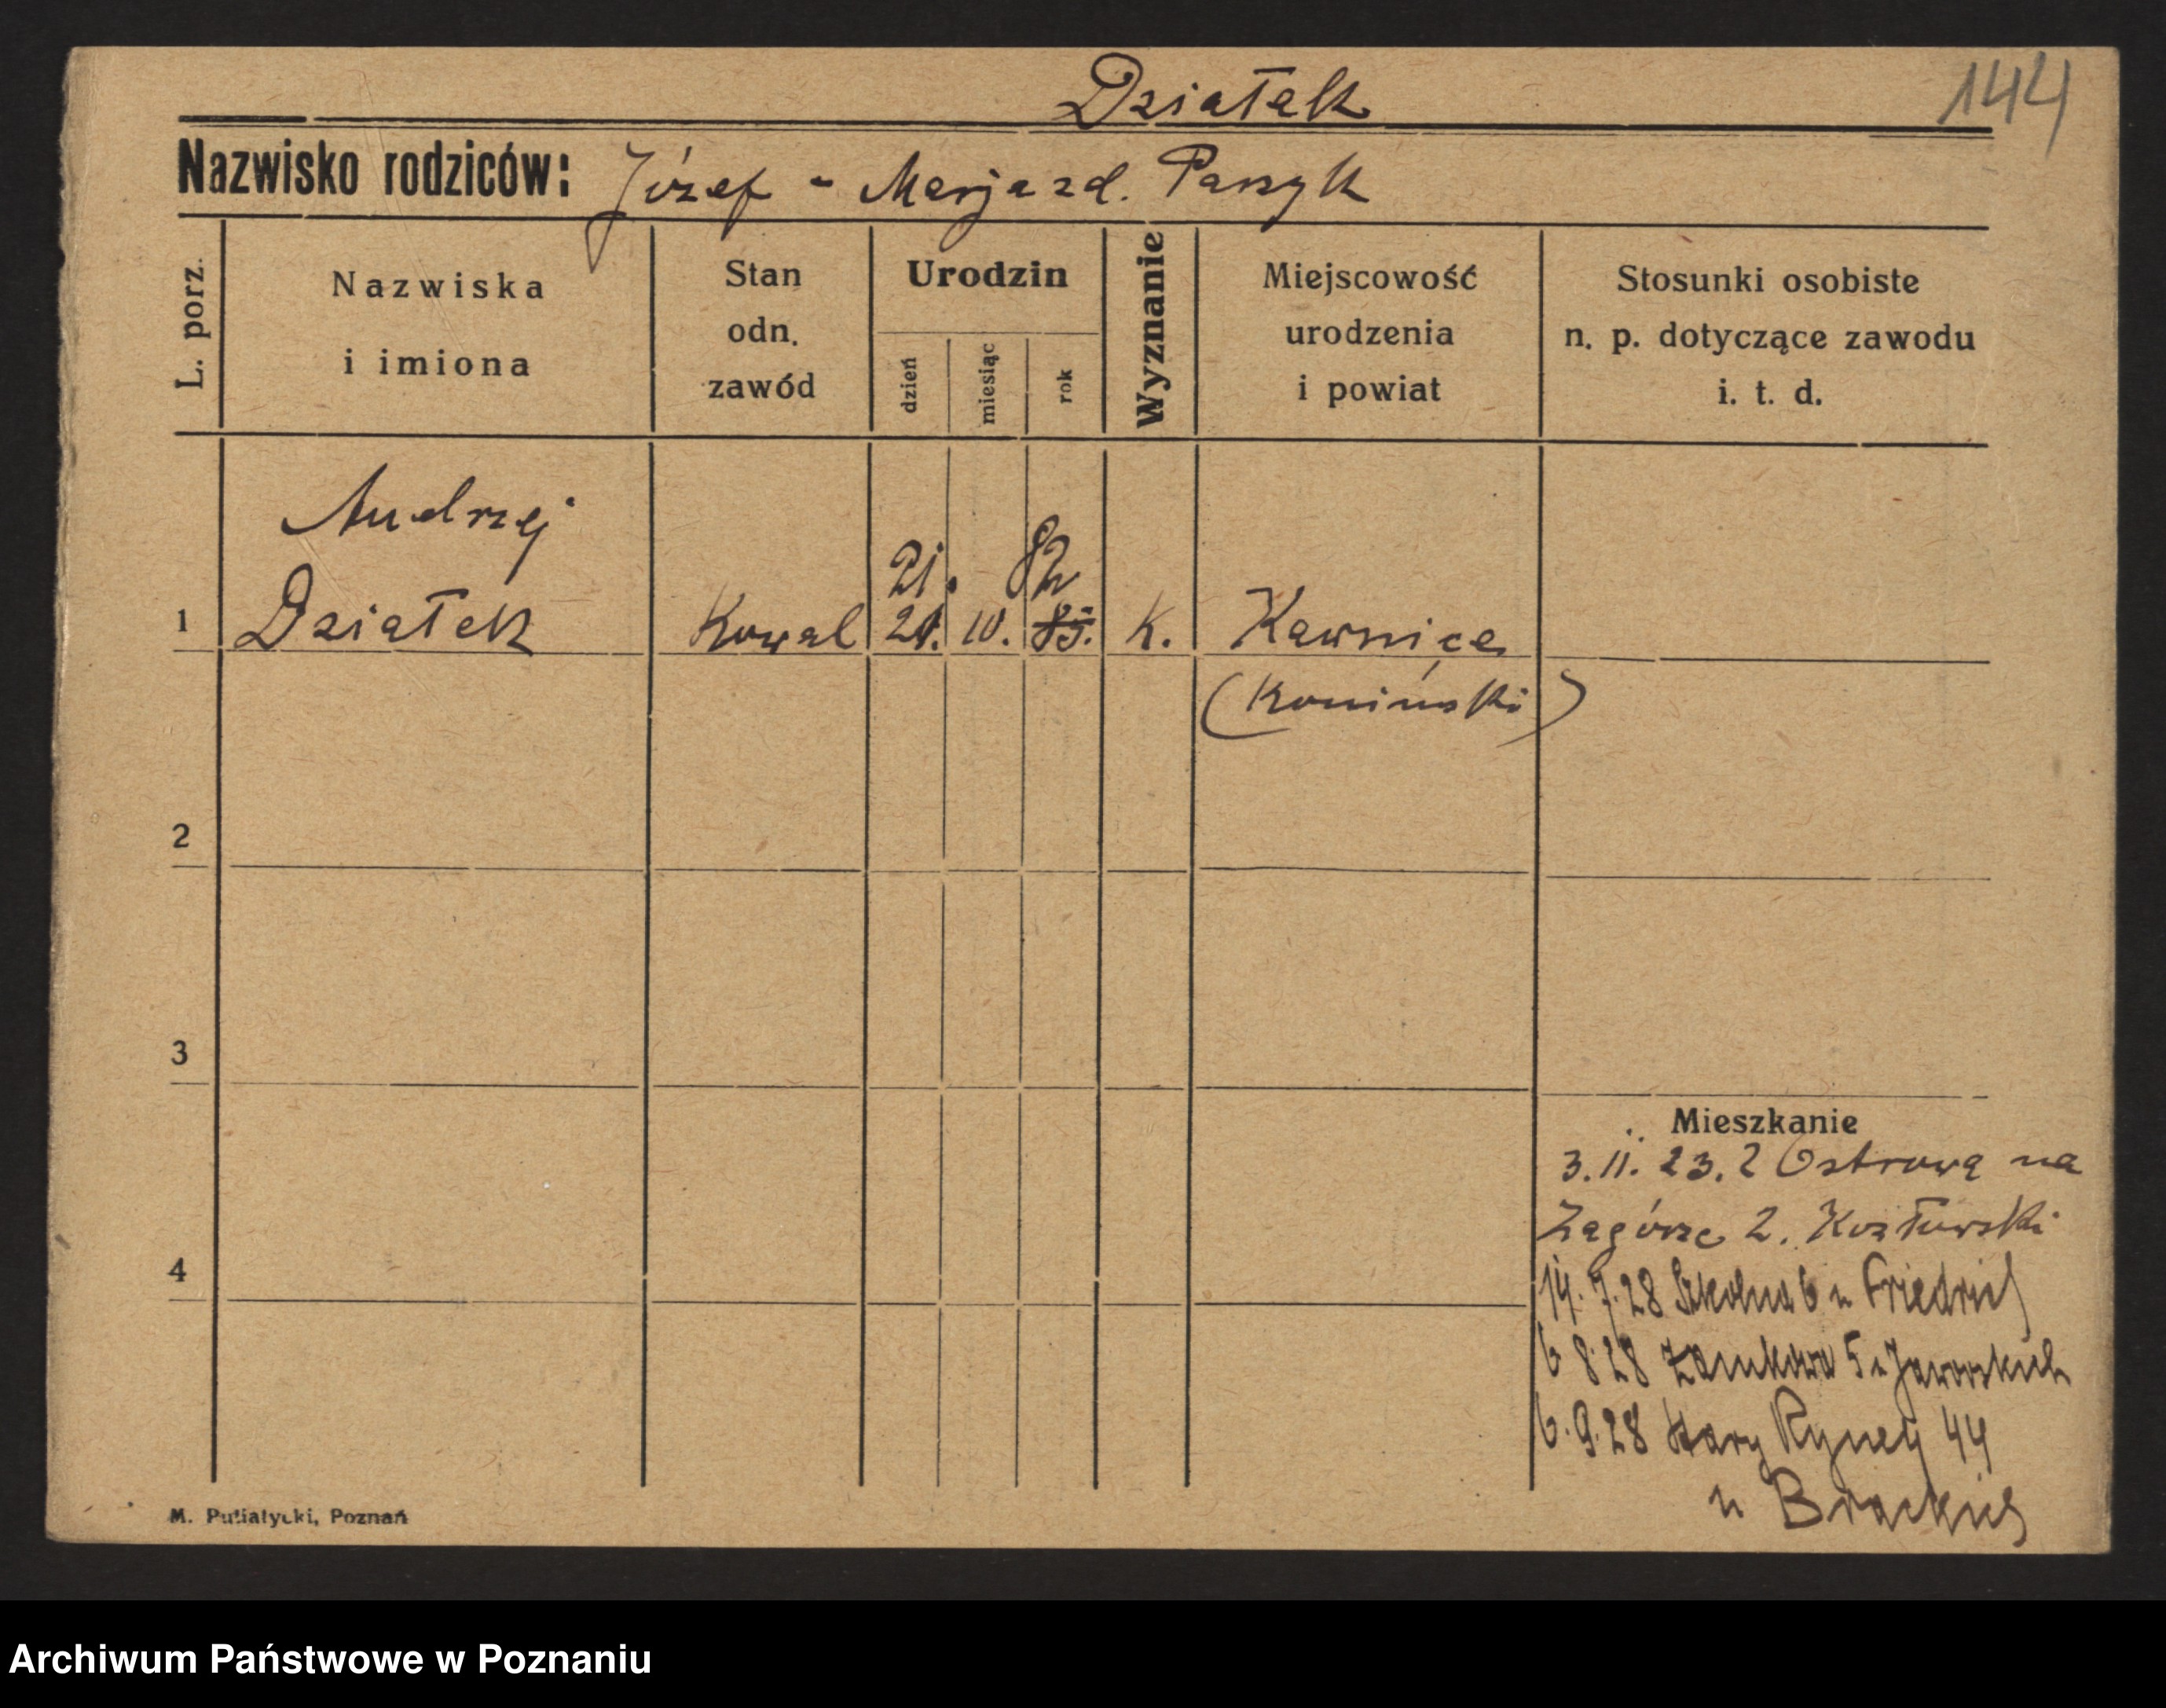 Działek
144
Nazwisko rodziców: Józef - Marja zd. Paszyk
L. porz.
Nazwiska
i imiona
Stan
odn.
zawód
Urodzin
dzień
miesiąc
rok
Wyznanie
Miejscowość
urodzenia
i powiat
Stosunki osobiste
n. p. dotyczące zawodu
i. t. d.
Andrzej
21. 82
1 Działek Kowal 21. 10. 85. K. Kawnice
(Koniński)
2
3
Mieszkanie
3. 11. 23. z Ostrowa na
Zagórze 2. Kozłowski
4
14. 7. 28 Szkolna 6 u Friedrich
6 8. 28 Zamkowa 5 u Jaworskich
6. 9. 28 Stary Rynek 44
u
M. Putiatycki, Poznań
Archiwum Państwowe w Poznaniu